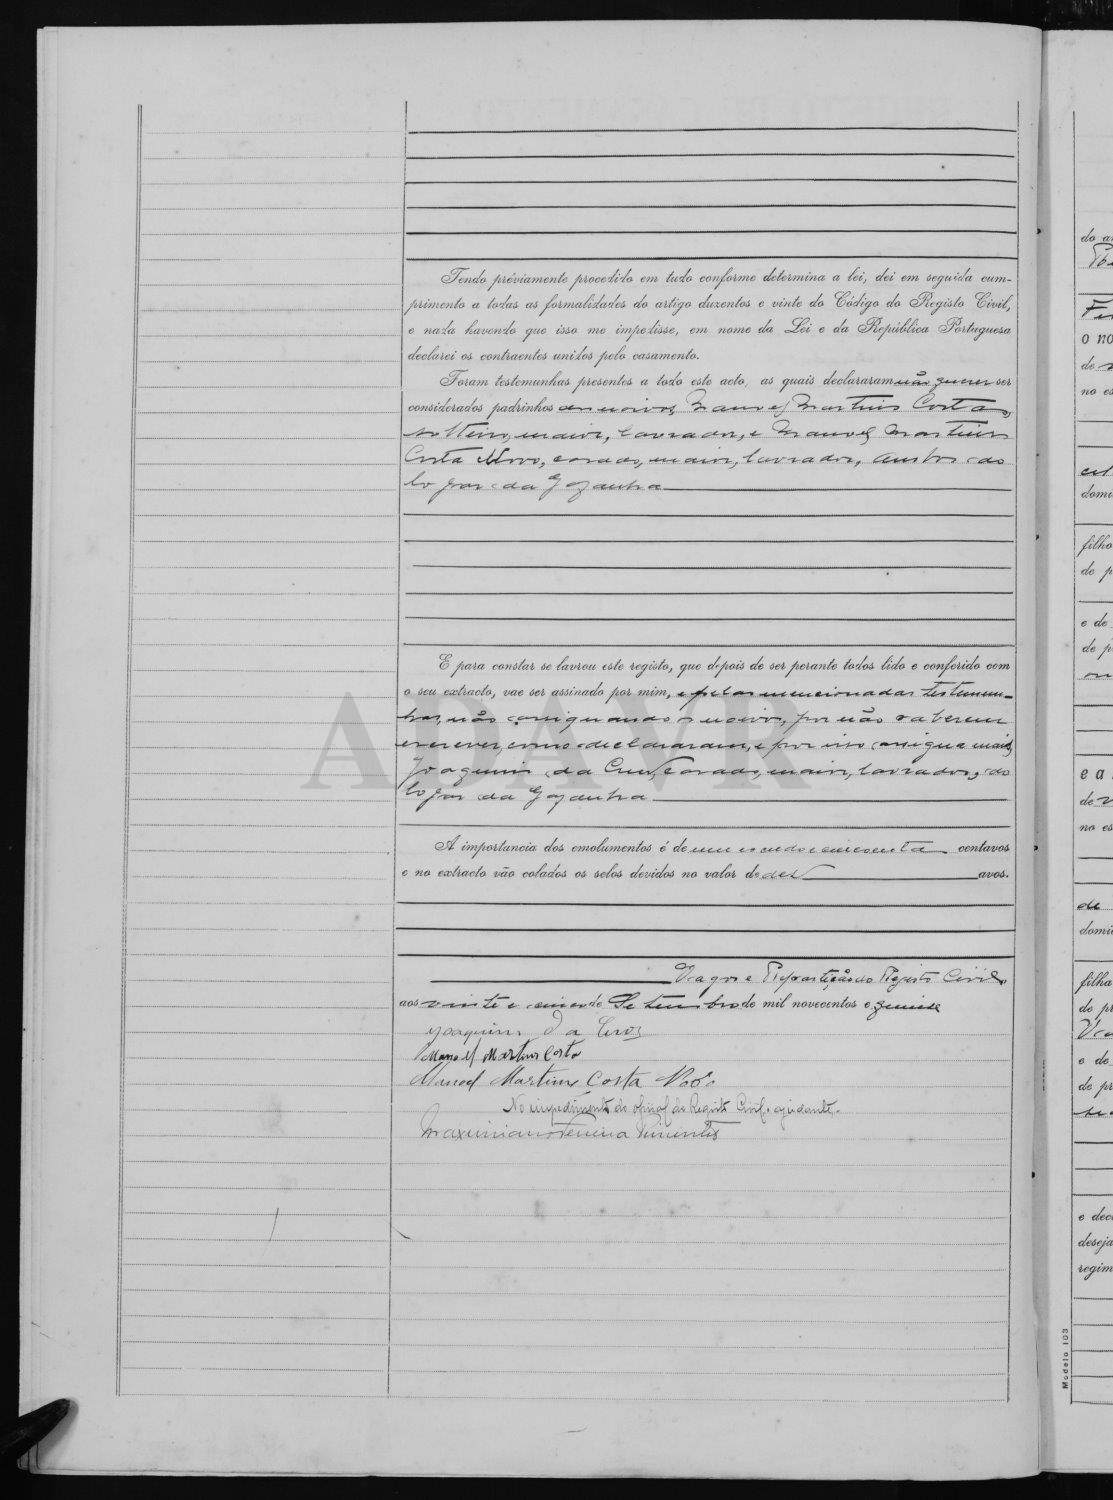 Tendo préviamente procedido em tudo conforme determina a lei, dei em seguida cum-
primento a todas as formalidades do artigo duzentos e vinte do Código do Registo Civil,
e nada havendo que isso me impedisse, em nome da Lei e da República Portuguesa
declarei os contraentes unidos pelo casamento.
Foram testemunhas presentes a todo este acto, as quais declararam não querer ser
considerados padrinhos dos noivos, Manoel Martins Costa,
solteiro, maior, lavrador, e Manoel Martins
Costa Novo, casado, maior, lavrador, ambos do
logar da Gafanha
E para constar se lavrou este registo, que depois de ser perante todos lido e conferido com
o seu extracto, vae ser assinado por mim, e pelas mencionadas testemu-
nhas, não assignando os noivos, por não saberem
escrever, como declararam, e por isso assigna mais,
Joaquim da Cruz, casado, maior, lavrador, do
logar da Gafanha
A importancia dos emolumentos é de um escudo e cincoenta centavos
e no extracto vão colados os selos devidos no valor de dez avos.
Vagos e Repartição do Registo Civil
aos vinte e cinco de Setembro de mil novecentos e quinze
Joaquim da Cruz
Manoel Martins Costa
Manoel Martins Costa Novo
No impedimento do oficial do Registo Civil, o ajudante.
Maximiano Ferreira Pimentel
ADAVR
do
o no
de
no es
domi
filho
de p
e de
de p
e a
de
no es
de
domi
filha
de pr
e de
de pr
e decl
deseja
regim
Modelo 103